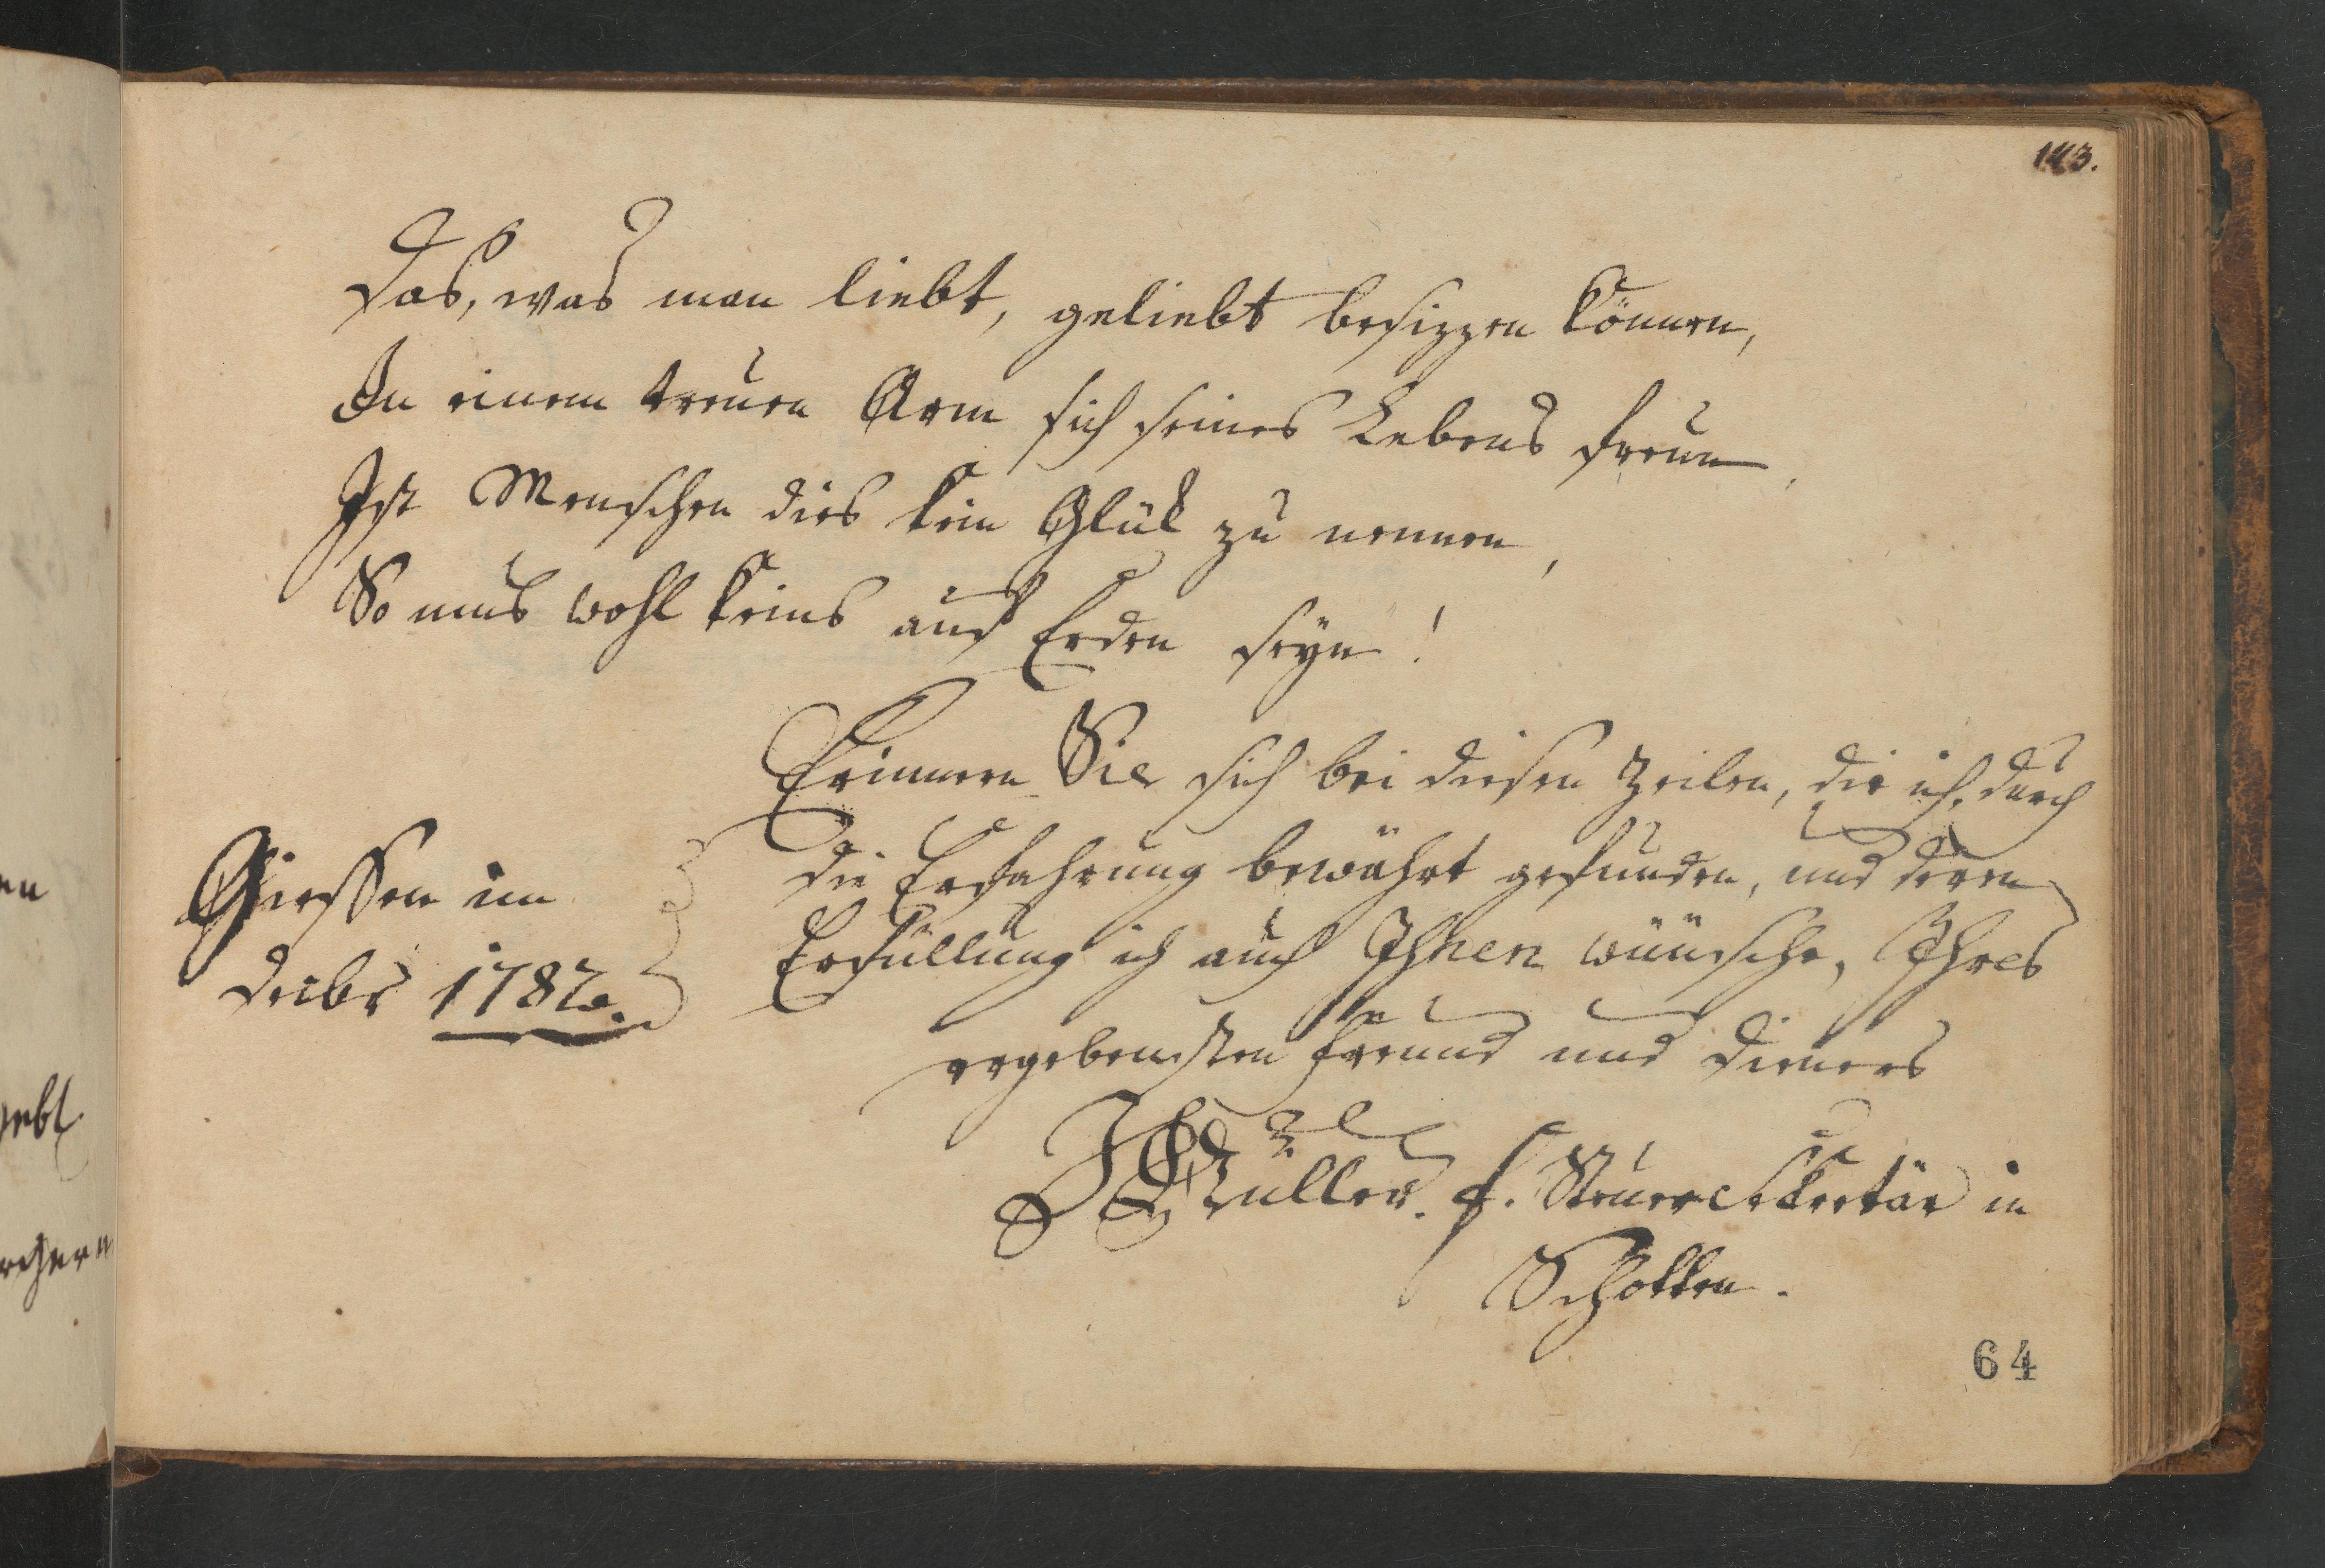 143.
Das, was man liebt, geliebt besizzen können,
In einem treuen Arm sich seines Lebens freun,
Ist Menschen dies kein Glük zu nennen,
So mus wohl keins auf Erden seyn!
Erinnern Sie sich bei diesen Zeilen, die ich durch
die Erfahrung bewährt gefunden, und deren
Erfüllung ich auch Ihnen wünsche, Ihres
ergebensten Freund und Dieners
Müller. Steuersekretär in
Schotten.
Giessen im
Decbr 1782.
64